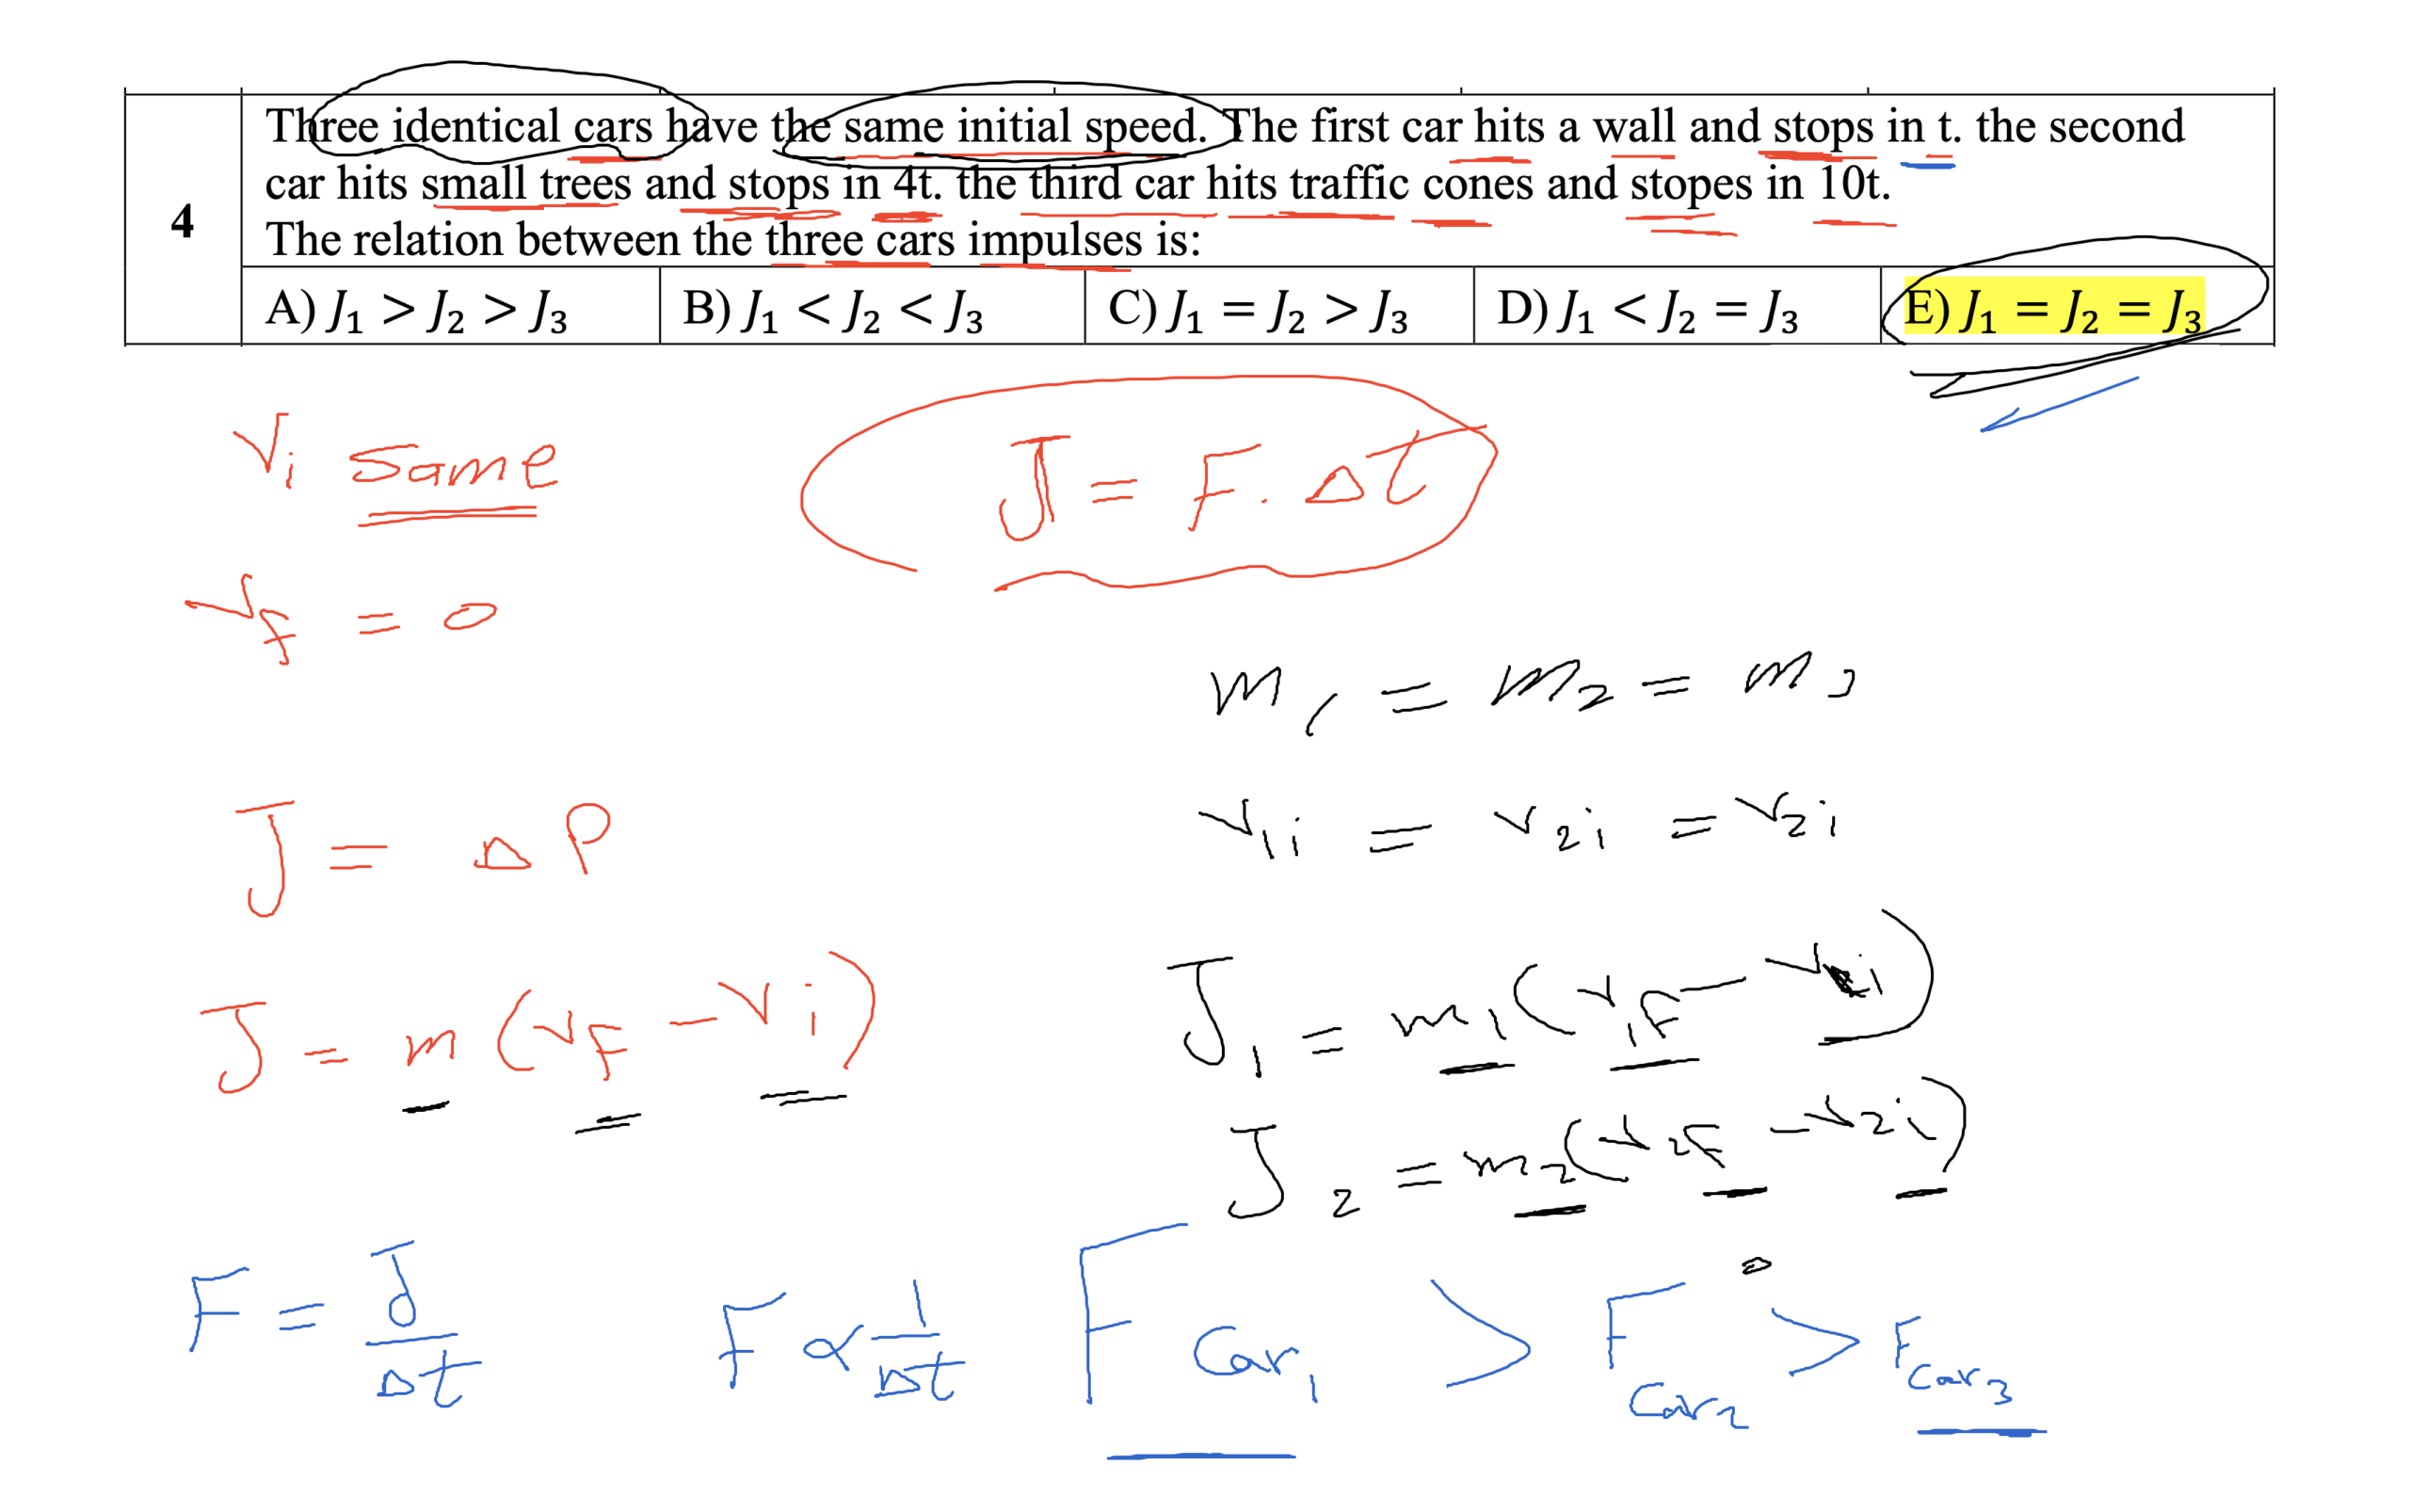 4
Three identical cars have the same initial speed. The first car hits a wall and stops in t. the second
car hits small trees and stops in 4t. the third car hits traffic cones and stopes in 10t.
The relation between the three cars impulses is:
A) J₁ > J₂ > J₃
B) J₁ < J₂ < J₃
C) J₁ = J₂ > J₃
D) J₁ < J₂ = J₃
E) J₁ = J₂ = J₃
Vᵢ Same
J = F. Δt
V_f = 0
m₁ = m₂ = m₃
V₁ᵢ = V₂ᵢ = V₂ᵢ
J = ΔP
J = m (V_F - Vᵢ)
J₁ = m₁ (V₁F - V ᵢ)
J₂ = m₂ (V₂F - V₂ᵢ)
F = J/Δt
F α 1/Δt
F Car₁ > F Car₂ > F Car₃